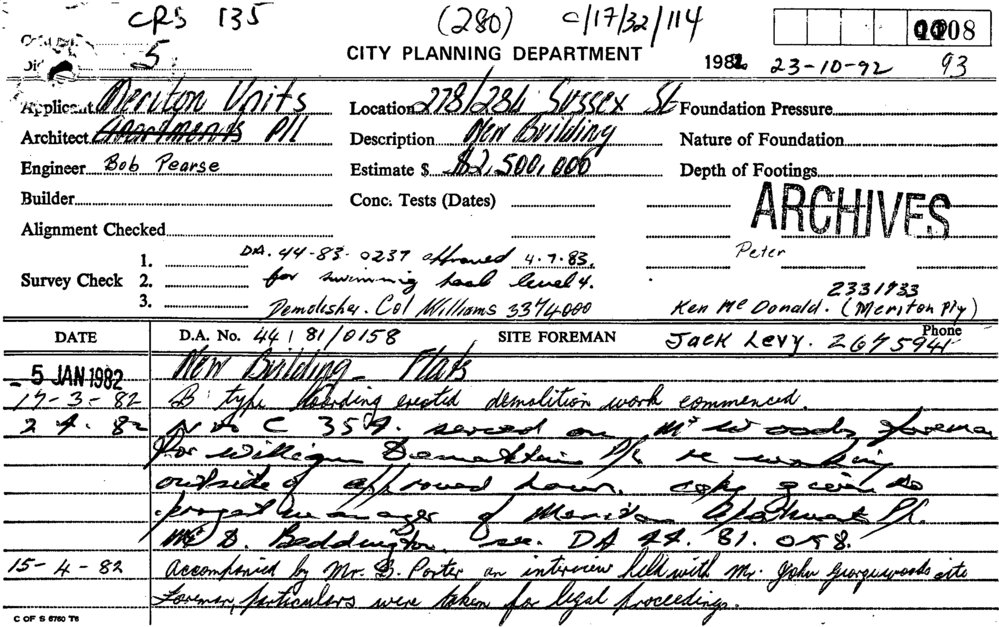 CRS 135 (280) C/17/32/114 08
5 CITY PLANNING DEPARTMENT 1982 23-10-92 93
Applicant Meriton Units Location 278/284 Sussex St Foundation Pressure
Architect Apartments P/L Description New Building Nature of Foundation
Engineer Bob Pearse Estimate $ $2,500,000 Depth of Footings
Builder Conc. Tests (Dates) ARCHIVES
Alignment Checked
1. DA. 44-83-0237 approved 4.7.83. Peter
Survey Check 2. for swimming pool level 4.
3. Demolisher. Col Williams 3374000 Ken McDonald. (Meriton Pty) 2331733
DATE D.A. No. 44/81/0158 SITE FOREMAN Jack Levy. Phone 2675941
5 JAN 1982 New Building - Flats
17-3-82 B type hoarding erected demolition work commenced.
2 4. 82 No C 354. served on Mr Woods foreman
for William Demolition P/L re working
outside of approved hours. copy given to
project manager of Meriton Apartments P/L.
Mr D. Beddington. see. DA 44. 81. 0158.
15-4-82 Accompanied by Mr. B. Porter an interview held with Mr. John George Woods site
Foreman, particulars were taken for legal proceedings.
C OF S 6760 T6